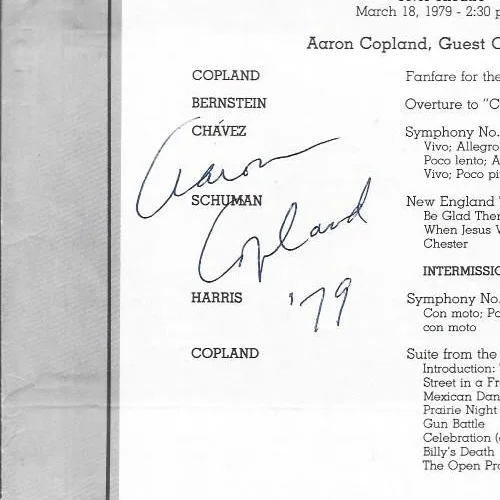 March 18, 1979 - 2:30 p
Aaron Copland, Guest C
COPLAND Fanfare for the
BERNSTEIN Overture to "C
CHÁVEZ Symphony No.
Vivo; Allegro
Poco lento; A
Vivo; Poco pi
Aaron
SCHUMAN New England T
Be Glad Then
When Jesus W
Chester
Copland
INTERMISSIO
HARRIS Symphony No.
Con moto; Po
con moto
'79
COPLAND Suite from the
Introduction: T
Street in a Fr
Mexican Dan
Prairie Night
Gun Battle
Celebration (
Billy's Death
The Open Pra